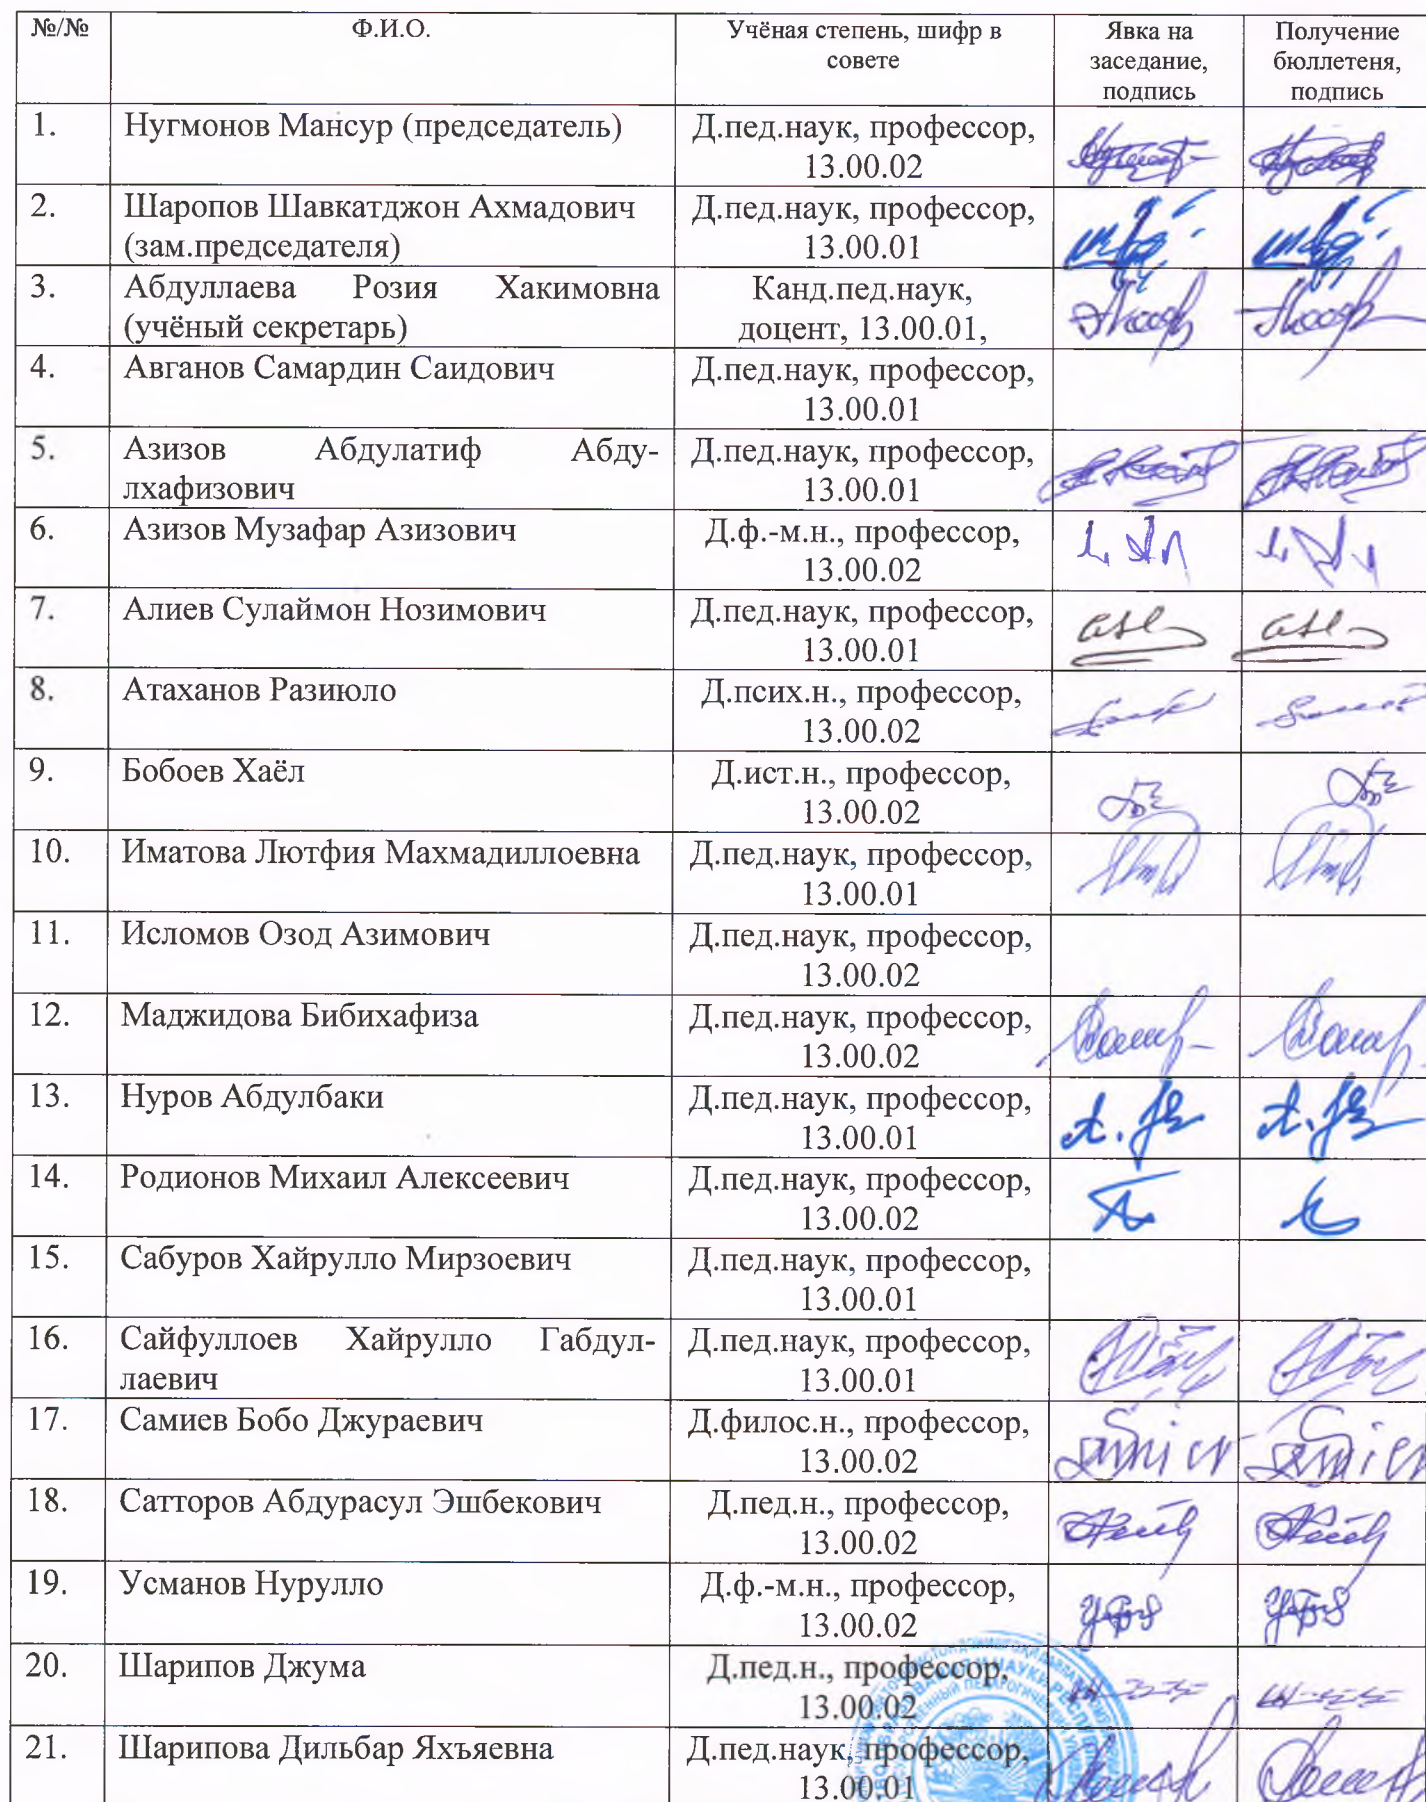 №/№ Ф.И.О. Учёная степень, шифр в совете Явка на заседание, подпись Получение бюллетеня, подпись
1. Нугмонов Мансур (председатель) Д.пед.наук, профессор,
13.00.02
2. Шаропов Шавкатджон Ахмадович Д.пед.наук, профессор,
(зам.председателя) 13.00.01
3. Абдуллаева Розия Хакимовна Канд.пед.наук,
(учёный секретарь) доцент, 13.00.01,
4. Авганов Самардин Саидович Д.пед.наук, профессор,
13.00.01
5. Азизов Абдулатиф Абду- Д.пед.наук, профессор,
лхафизович 13.00.01
6. Азизов Музафар Азизович Д.ф.-м.н., профессор,
13.00.02
7. Алиев Сулаймон Нозимович Д.пед.наук, профессор,
13.00.01
8. Атаханов Разиюло Д.псих.н., профессор,
13.00.02
9. Бобоев Хаёл Д.ист.н., профессор,
13.00.02
10. Иматова Лютфия Махмадиллоевна Д.пед.наук, профессор,
13.00.01
11. Исломов Озод Азимович Д.пед.наук, профессор,
13.00.02
12. Маджидова Бибихафиза Д.пед.наук, профессор,
13.00.02
13. Нуров Абдулбаки Д.пед.наук, профессор,
13.00.01
14. Родионов Михаил Алексеевич Д.пед.наук, профессор,
13.00.02
15. Сабуров Хайрулло Мирзоевич Д.пед.наук, профессор,
13.00.01
16. Сайфуллоев Хайрулло Габдул- Д.пед.наук, профессор,
лаевич 13.00.01
17. Самиев Бобо Джураевич Д.филос.н., профессор,
13.00.02
18. Сатторов Абдурасул Эшбекович Д.пед.н., профессор,
13.00.02
19. Усманов Нурулло Д.ф.-м.н., профессор,
13.00.02
20. Шарипов Джума Д.пед.н., профессор,
13.00.02
21. Шарипова Дильбар Яхъяевна Д.пед.наук, профессор,
13.00.01